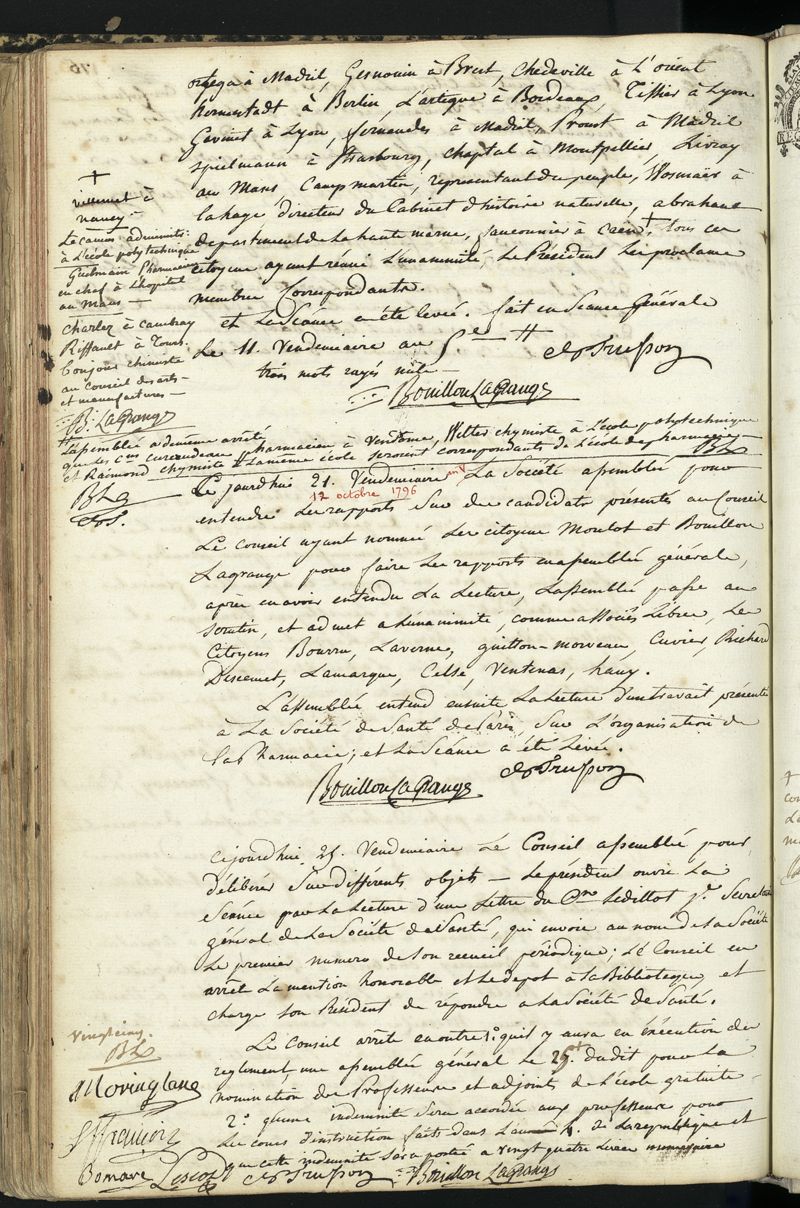 ortega à Madrid, Gesnouin à Brest, Chedeville à L'orient
hermestadt à Berlin, L'artigue à Bordeaux, Tissier à Lyon
Gavinet à Lyon, fernandes à Madrit, Proust à Madrid
spielmann à Strasbourg, chaptal à Montpellier, Livray
au Mans, Camp martin, representant du peuple, Wosmaër à
la haye directeur du Cabinet d'histoire naturelle, abraham
departement de la haute marne, fauconnier à caen + tous ces
citoyens ayant réuni L'unanimité, Le Président les proclame
membres Correspondants.
et La Séance a été levée. fait en Séance Générale
Le 11. Vendemiaire an 5e #
trois mots rayés nuls
Cls Trusson
Bouillon LaGrange
+
villemet à
nancy -
Le camus administr:
à L'école polytechnique
Guelmain Pharmacien
en chef à L'hopital
au Mans —
Charlez à Cambray
Riffault à Tours.
Conjour chimiste
au Conseil des arts
et manufactures -
B. LaGrange
# L'assemblée a de même arrêté
que les Cens curaudeau pharmacien à Vendôme, Welter chymiste à L'école polytechnique
et Raimond chymiste à La même école seroient correspondants de L'école de pharmacie —
BLG
BLG
Cls T.
Ce jourdhui 21. Vendemiaire an V La Société assemblée pour
12 octobre 1796
entendre Les rapports Sur des candidats présentés au Conseil
Le Conseil ayant nommé Les citoyens Moutot et Bouillon
Lagrange pour faire Les rapports en assemblée générale,
après en avoir entendu La Lecture, L'assemblée passe au
scrutin, et admet a L'unanimité, comme associés Libres, Les
Citoyens Bourru, Laverne, guitton-morveau, Cuvier, Richard
Descemet, Lamarque, Celse, Ventenas, hauy.
L'assemblée entend ensuite La Lecture d'un travail présenté
à La Société de Santé de Paris, Sur L'organisation de
la Pharmacie; et La Séance a été Levée.
Bouillon LaGrange Cls Trusson
Cejourdhui 25. Vendemiaire Le Conseil assemblé pour
délibérer Sur différents objets — Le président ouvre La
Séance par La Lecture d'une Lettre du Cen Sedillot jne Secretaire
général de La Société de Santé, qui envoie au nom de La Société
Le premier numero de Son recueil périodique; Le Conseil en
arrête La mention honorable et Le depot à La Biblioteque, et
charge Son Président de répondre a La Société de Santé.
Le Conseil arrête en outre 1.° qu'il y aura en exécution du
reglement une assemblée général Le 25. dudit pour La
nomination des Professeurs et adjoints de L'école gratuite
2.° qu'une indemnité Sera accordée aux professeurs pour
Le cours d'instruction faits dans L'an 4. de La république et
que cette indemnité Sera portée a vingt quatre Livres numéraire
Vingt cinq.
BLG
Moringlane
ffrançois
Bomare Lescot Cls Trusson Bouillon LaGrange